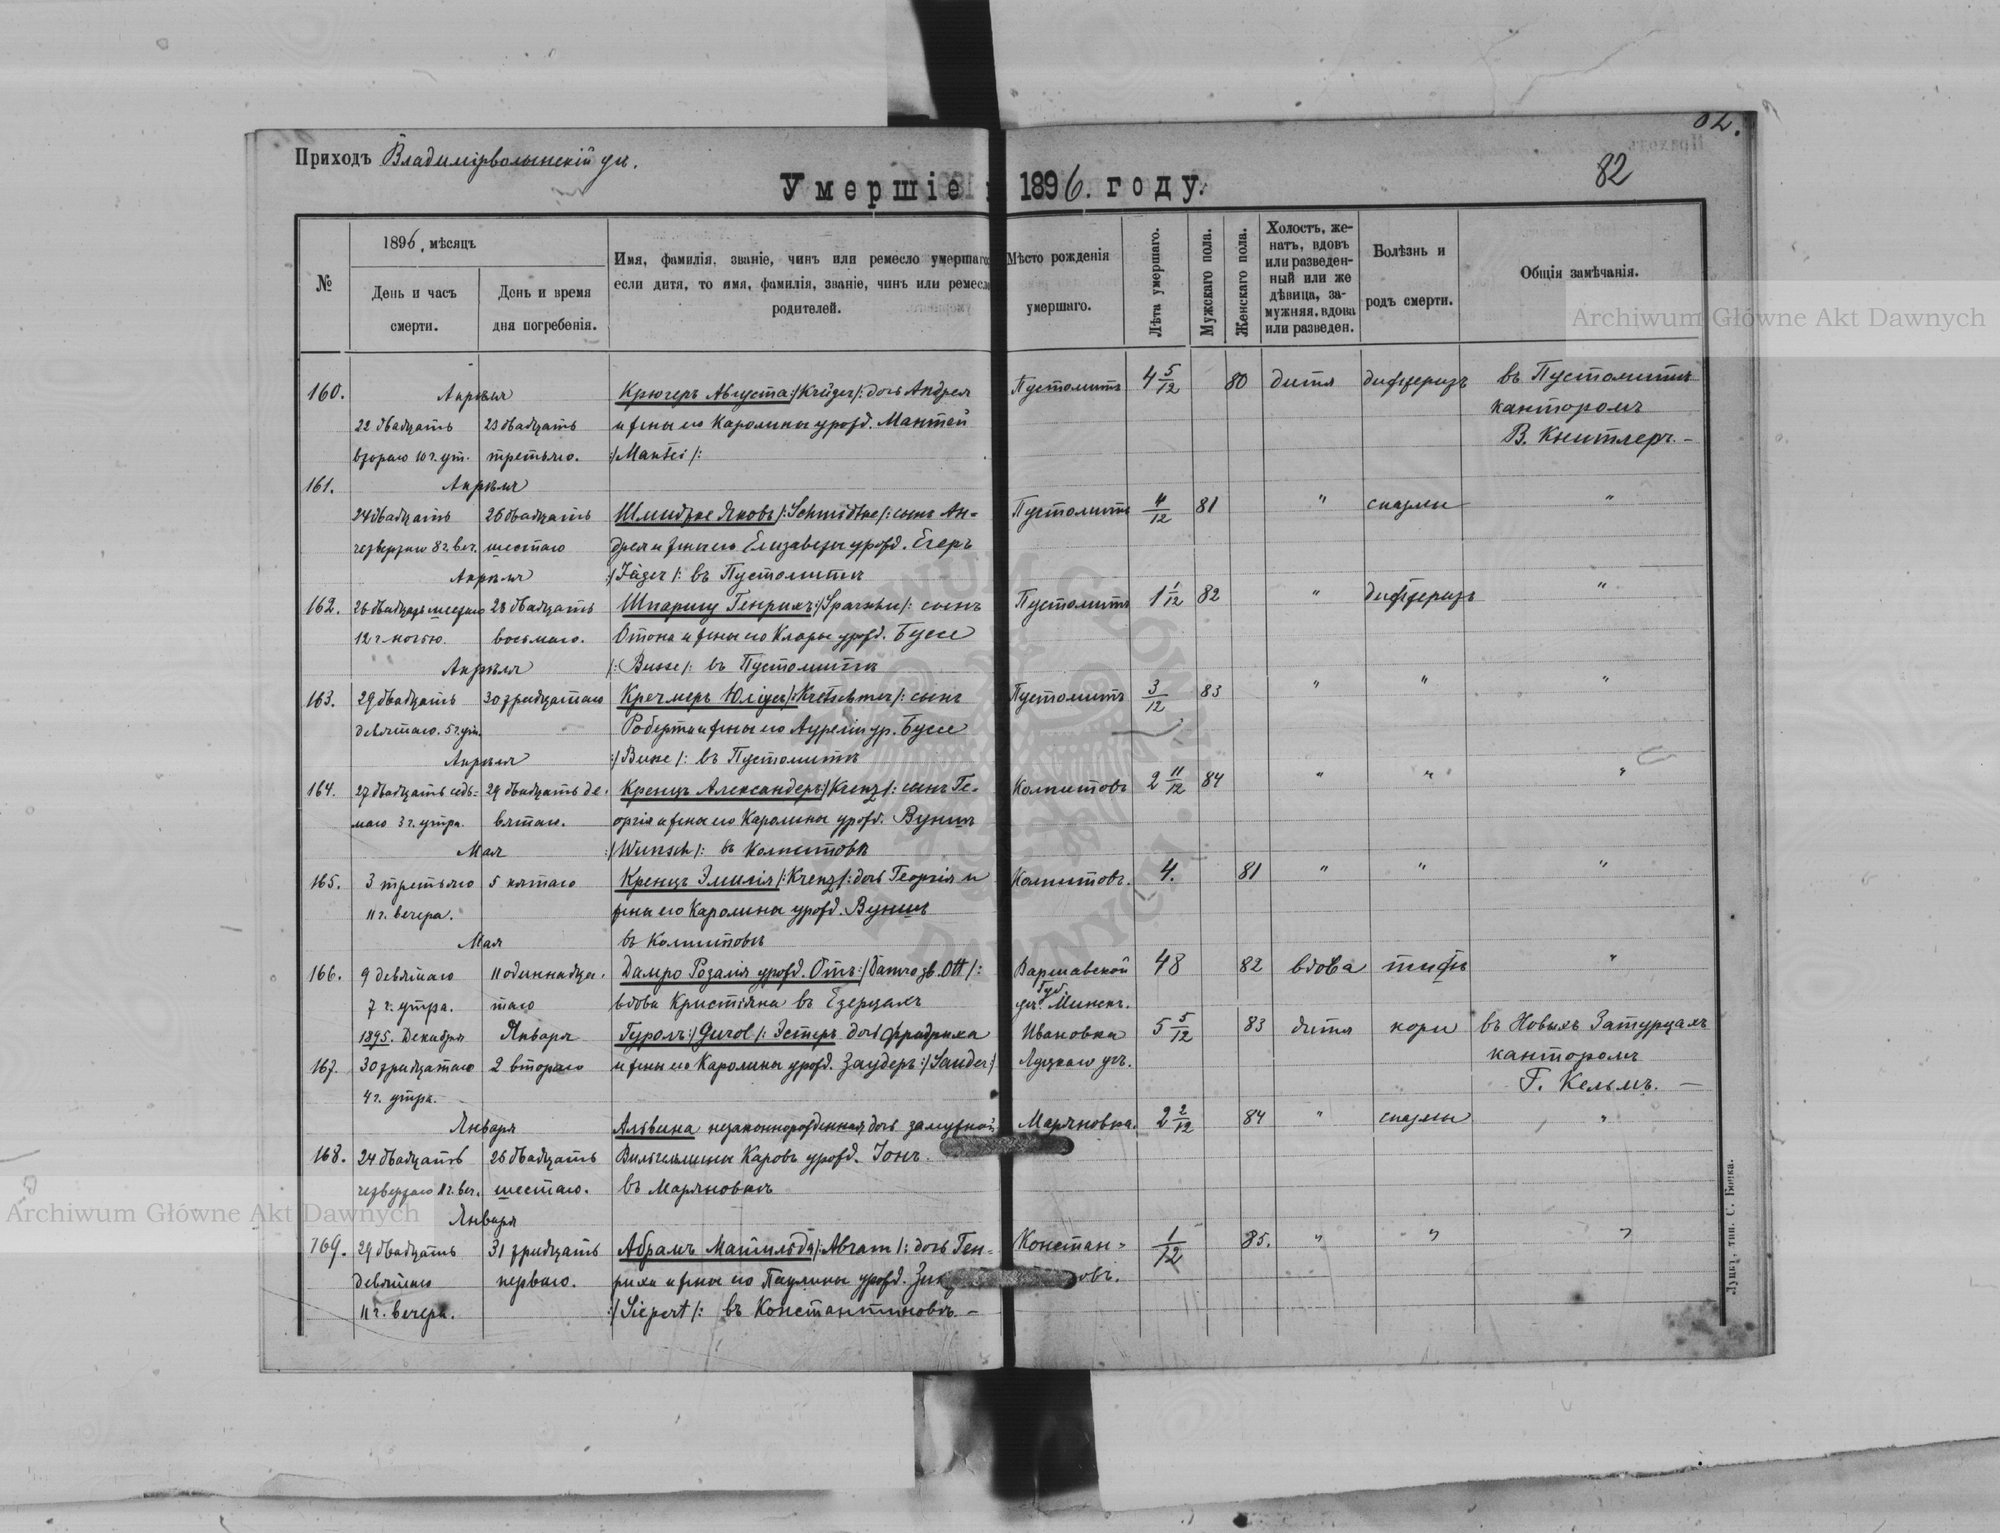 82.
Приходъ Владимірволынскій ун.
82
Умершіе 1896. году.
№
1896, мѣсяцъ
День и часъ смерти.
День и время дня погребенія.
Имя, фамилія, званіе, чинъ или ремесло умершаго
если дитя, то имя, фамилія, званіе, чинъ или ремесло
родителей.
Мѣсто рожденія умершаго.
Лѣта умершаго.
Мужскаго пола.
Женскаго пола.
Холостъ, женатъ, вдовъ или разведенный или же дѣвица, замужняя, вдова или разведен.
Болѣзнь и родъ смерти.
Общія замѣчанія.
Archiwum Główne Akt Dawnych
160. Апрѣля Крюгеръ Августа :/Krüger/: дочь Андрея Пустомитъ 4 5/12 80 дитя дифтеритъ въ Пустомитѣ
22 двадцать 23 двадцать и жены его Каролины урожд. Мантей канторомъ
втораго 10 ч. ут. третьяго. :/Mantei/: В. Книтлеръ. –
161. Апрѣля
24 двадцать 26 двадцать Шмидтке Яковъ /:Schmidtke/: сынъ Ан= Пустомитъ 4/12 81 " спазмы "
четвертаго 8 ч. веч. шестаго дрея и жены его Елизаветы урожд. Егеръ
Апрѣля :/Jäger/: въ Пустомитѣ
162. 26 двадцать шестаго 28 двадцать Генрихъ сынъ Пустомитъ 1 1/12 82 " дифтеритъ "
12 ч. ночью. восьмаго. Отона и жены его Клары урожд. Буссе
Апрѣля /:Busse/: въ Пустомитѣ
163. 29 двадцать 30 тридцатаго Кречмеръ Юліусъ /:Kretschmer/: сынъ Пустомитъ 3/12 83 " " "
девятаго. 5 ч. ут. Роберта и жены его Ауреліи ур. Буссе
Апрѣля :/Busse/: въ Пустомитѣ
164. 27 двадцать седь= 29 двадцать де. Кренцъ Александеръ :/Krenz/: сынъ Ге= Колпитовъ 2 11/12 84 " " "
маго 3 ч. утра. вятаго. оргія и жены его Каролины урожд. Вуншъ
Мая :/Wunsch/: въ Колпитовѣ
165. 3 третьяго 5 пятаго Кренцъ Эмилія /:Krenz/: дочь Георгія и Колпитовъ. 4. 81 " " "
11 ч. вечера. жены его Каролины урожд. Вуншъ
Мая въ Колпитовѣ
166. 9 девятаго 11 одиннадца. Дамро Розалія урожд. Отъ :/Damro gb. Ott/: Варшавской 48 82 вдова тифъ "
7 ч. утра. таго вдова Кристіяна въ Езерцахъ губ. Минск.
1895. Декабря Января Гуролъ :/Gurol/: Эстеръ дочь Фридриха Ивановка 5 5/12 83 дитя кори въ Новыхъ Затурцахъ
167. 30 тридцатаго 2 втораго и жены его Каролины урожд. Заудеръ :/Sauder:/ Луцкаго уѣ. канторомъ
4 ч. утра. Г. Кельмъ. –
Января Альвина незаконнорожденная дочь замужной Маряновка. 2 2/12 84 " спазмы "
168. 24 двадцать 26 двадцать Вильгельмины Каровъ урожд. Іонъ.
четвертаго 11 ч. веч. шестаго. въ Маряновкѣ
Января
169. 29 двадцать 31 тридцать Абрамъ Матильда /:Abram/: дочь Ген= Констан= 1/12 85. " " "
девятаго перваго. риха и жены его Паулины урожд. овъ.
11 ч. вечера. :/Siepert/: въ Константиновѣ. –
Archiwum Główne Akt Dawnych
Луцкъ, тип. С. Бонка.